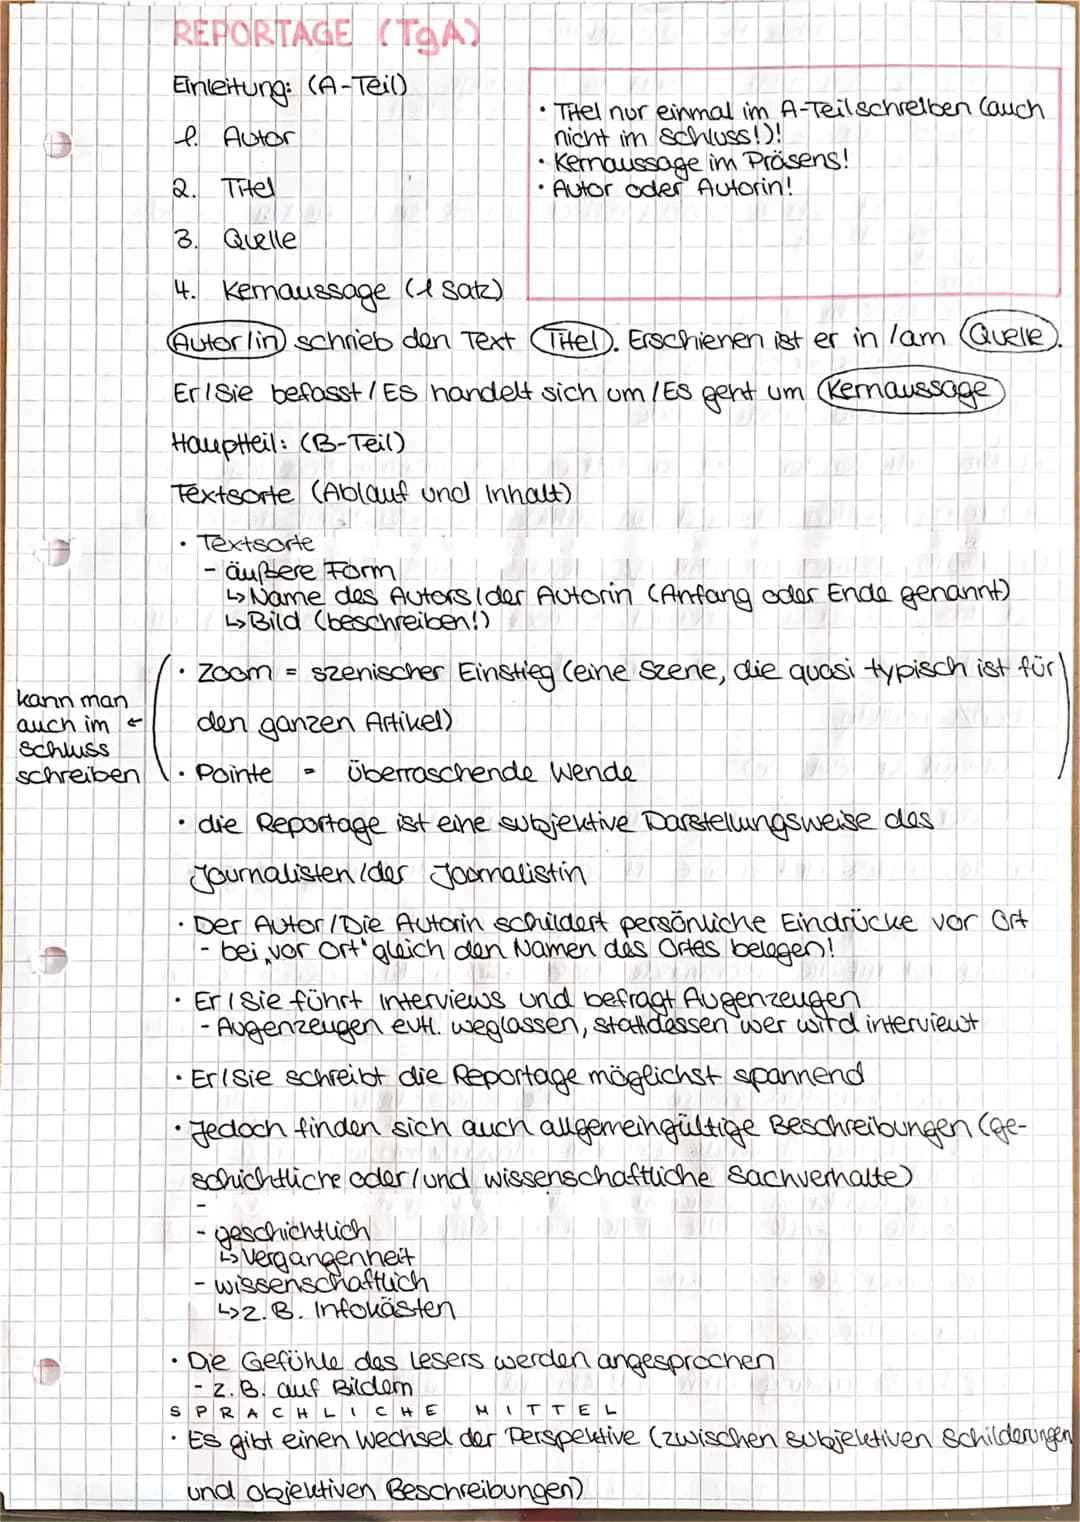 REPORTAGE (TgA)
Einleitung: (A-Teil)
1. Autor
2. Titel
3. Quelle
4. Kernaussage (1 Satz)
• Titel nur einmal im A-Teil schreiben (auch
nicht im Schluss!)!
• Kernaussage im Präsens!
• Autor oder Autorin!
Autor/in schrieb den Text Titel. Erschienen ist er in /am Quelle.
Er/Sie befasst / Es handelt sich um /Es geht um Kernaussage
Hauptteil: (B-Teil)
Textsorte (Ablauf und Inhalt)
• Textsorte
- äußere Form
↳ Name des Autors/der Autorin (Anfang oder Ende genannt)
↳ Bild (beschreiben!)
• Zoom = szenischer Einstieg (eine Szene, die quasi typisch ist für
den ganzen Artikel)
• Pointe = überraschende Wende
kann man
auch im ←
Schluss
schreiben
• die Reportage ist eine subjektive Darstellungsweise des
Journalisten/der Journalistin
• Der Autor/Die Autorin schildert persönliche Eindrücke vor Ort
- bei „vor Ort" gleich den Namen des Ortes belegen!
• Er/Sie führt Interviews und befragt Augenzeugen
- Augenzeugen evtl. weglassen, stattdessen wer wird interviewt
• Er/Sie schreibt die Reportage möglichst spannend
• Jedoch finden sich auch allgemeingültige Beschreibungen (ge-
schichtliche oder/und wissenschaftliche Sachverhalte)
-
- geschichtlich
↳ Vergangenheit
- wissenschaftlich
↳ z.B. Infokästen
• Die Gefühle des Lesers werden angesprochen
- z.B. auf Bildern
SPRACHLICHE MITTEL
• Es gibt einen Wechsel der Perspektive (zwischen subjektiven Schilderungen
und objektiven Beschreibungen)